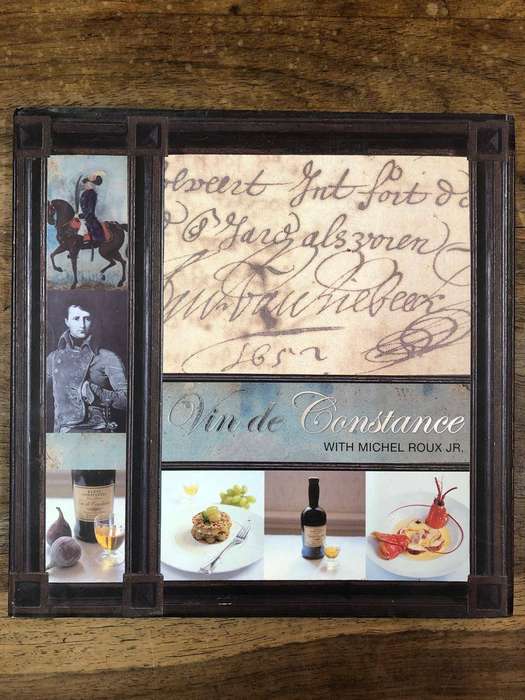 olveert Int fort d
Jard alsvoren
1652
Vin de Constance
WITH MICHEL ROUX JR.